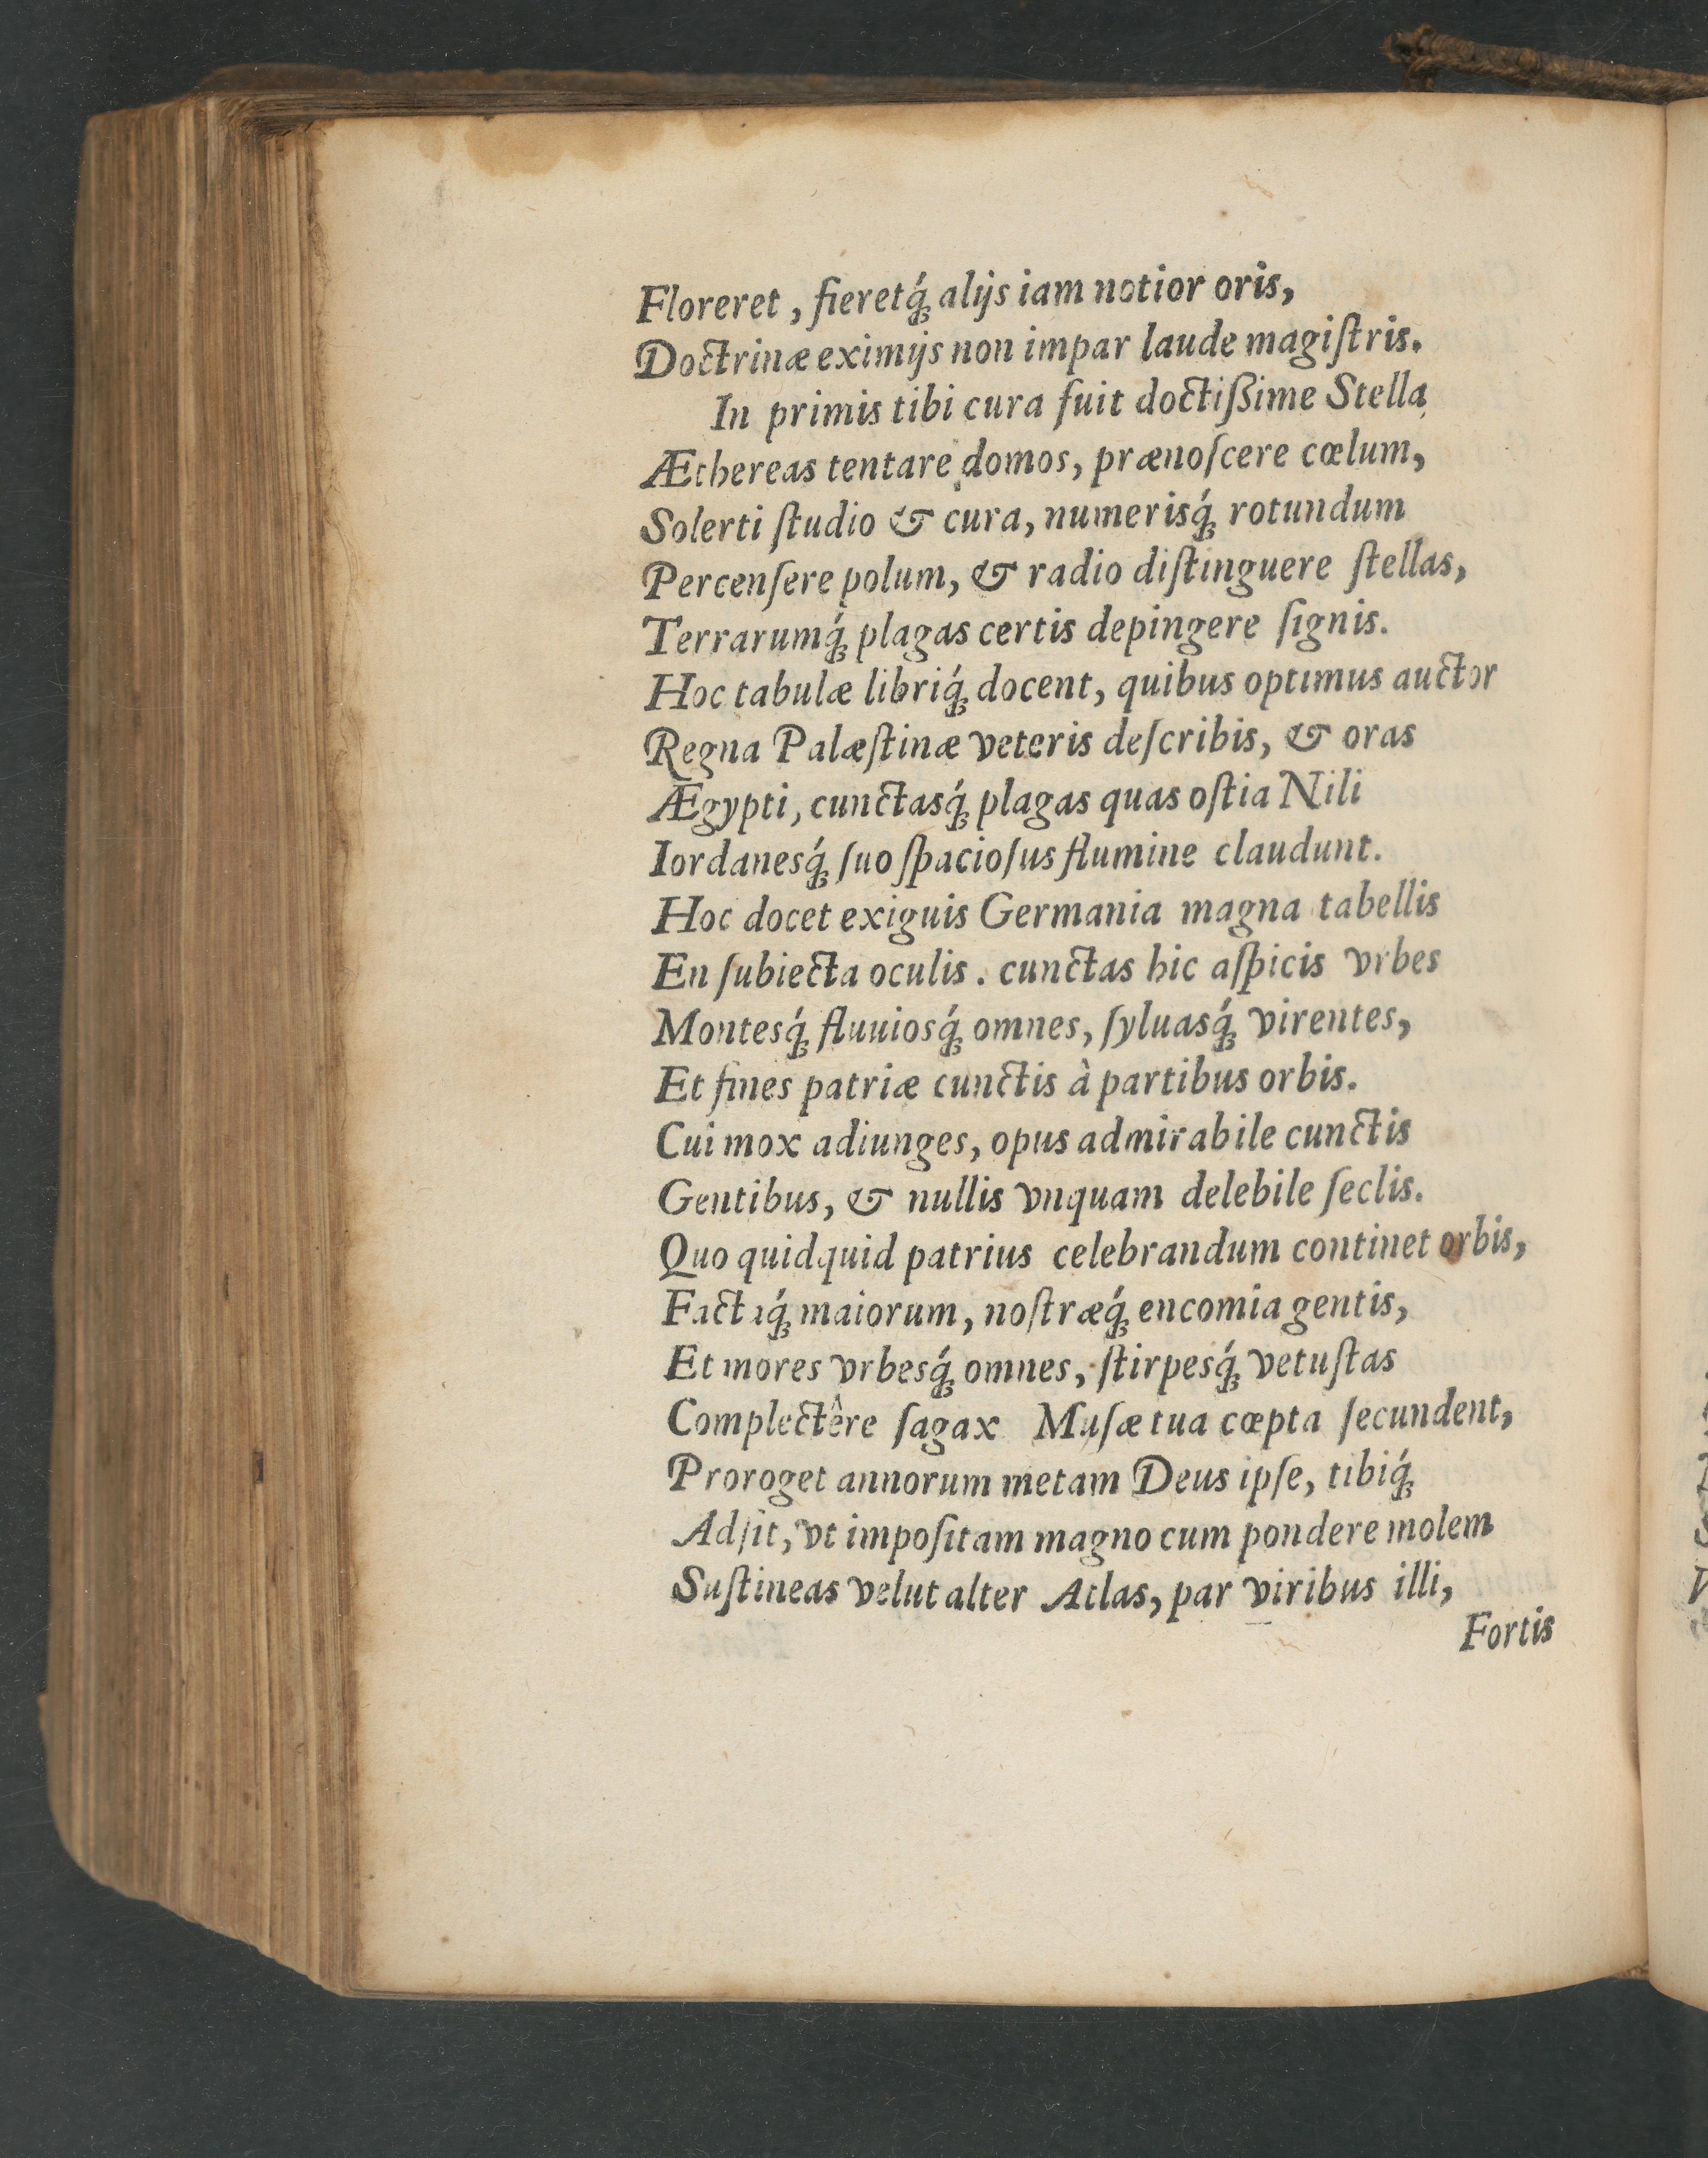 Floreret, fieretq́ꝫ alijs iam notior oris,
Doctrinæ eximijs non impar laude magiſtris.
In primis tibi cura fuit doctiſsime Stella
Æthereas tentare domos, prænoſcere cœlum,
Solerti ſtudio & cura, numerisq́ꝫ rotundum
Percenſere polum, & radio diſtinguere ſtellas,
Terrarumq́ꝫ plagas certis depingere ſignis.
Hoc tabulæ libriq́ꝫ docent, quibus optimus auctor
Regna Palæſtinæ veteris deſcribis, & oras
Ægypti, cunctasq́ꝫ plagas quas oſtia Nili
Iordanesq́ꝫ ſuo ſpacioſus flumine claudunt.
Hoc docet exiguis Germania magna tabellis
En ſubiecta oculis. cunctas hic aſpicis vrbes
Montesq́ꝫ fluuiosq́ꝫ omnes, ſyluasq́ꝫ virentes,
Et fines patriæ cunctis à partibus orbis.
Cui mox adiunges, opus admirabile cunctis
Gentibus, & nullis vnquam delebile ſeclis.
Quo quidquid patrius celebrandum continet orbis,
Factaq́ꝫ maiorum, noſtræq́ꝫ encomia gentis,
Et mores vrbesq́ꝫ omnes, ſtirpesq́ꝫ vetuſtas
Complectêre ſagax Muſæ tua cœpta ſecundent,
Proroget annorum metam Deus ipſe, tibiq́ꝫ
Adſit, vt impoſitam magno cum pondere molem
Suſtineas velut alter Atlas, par viribus illi,
Fortis